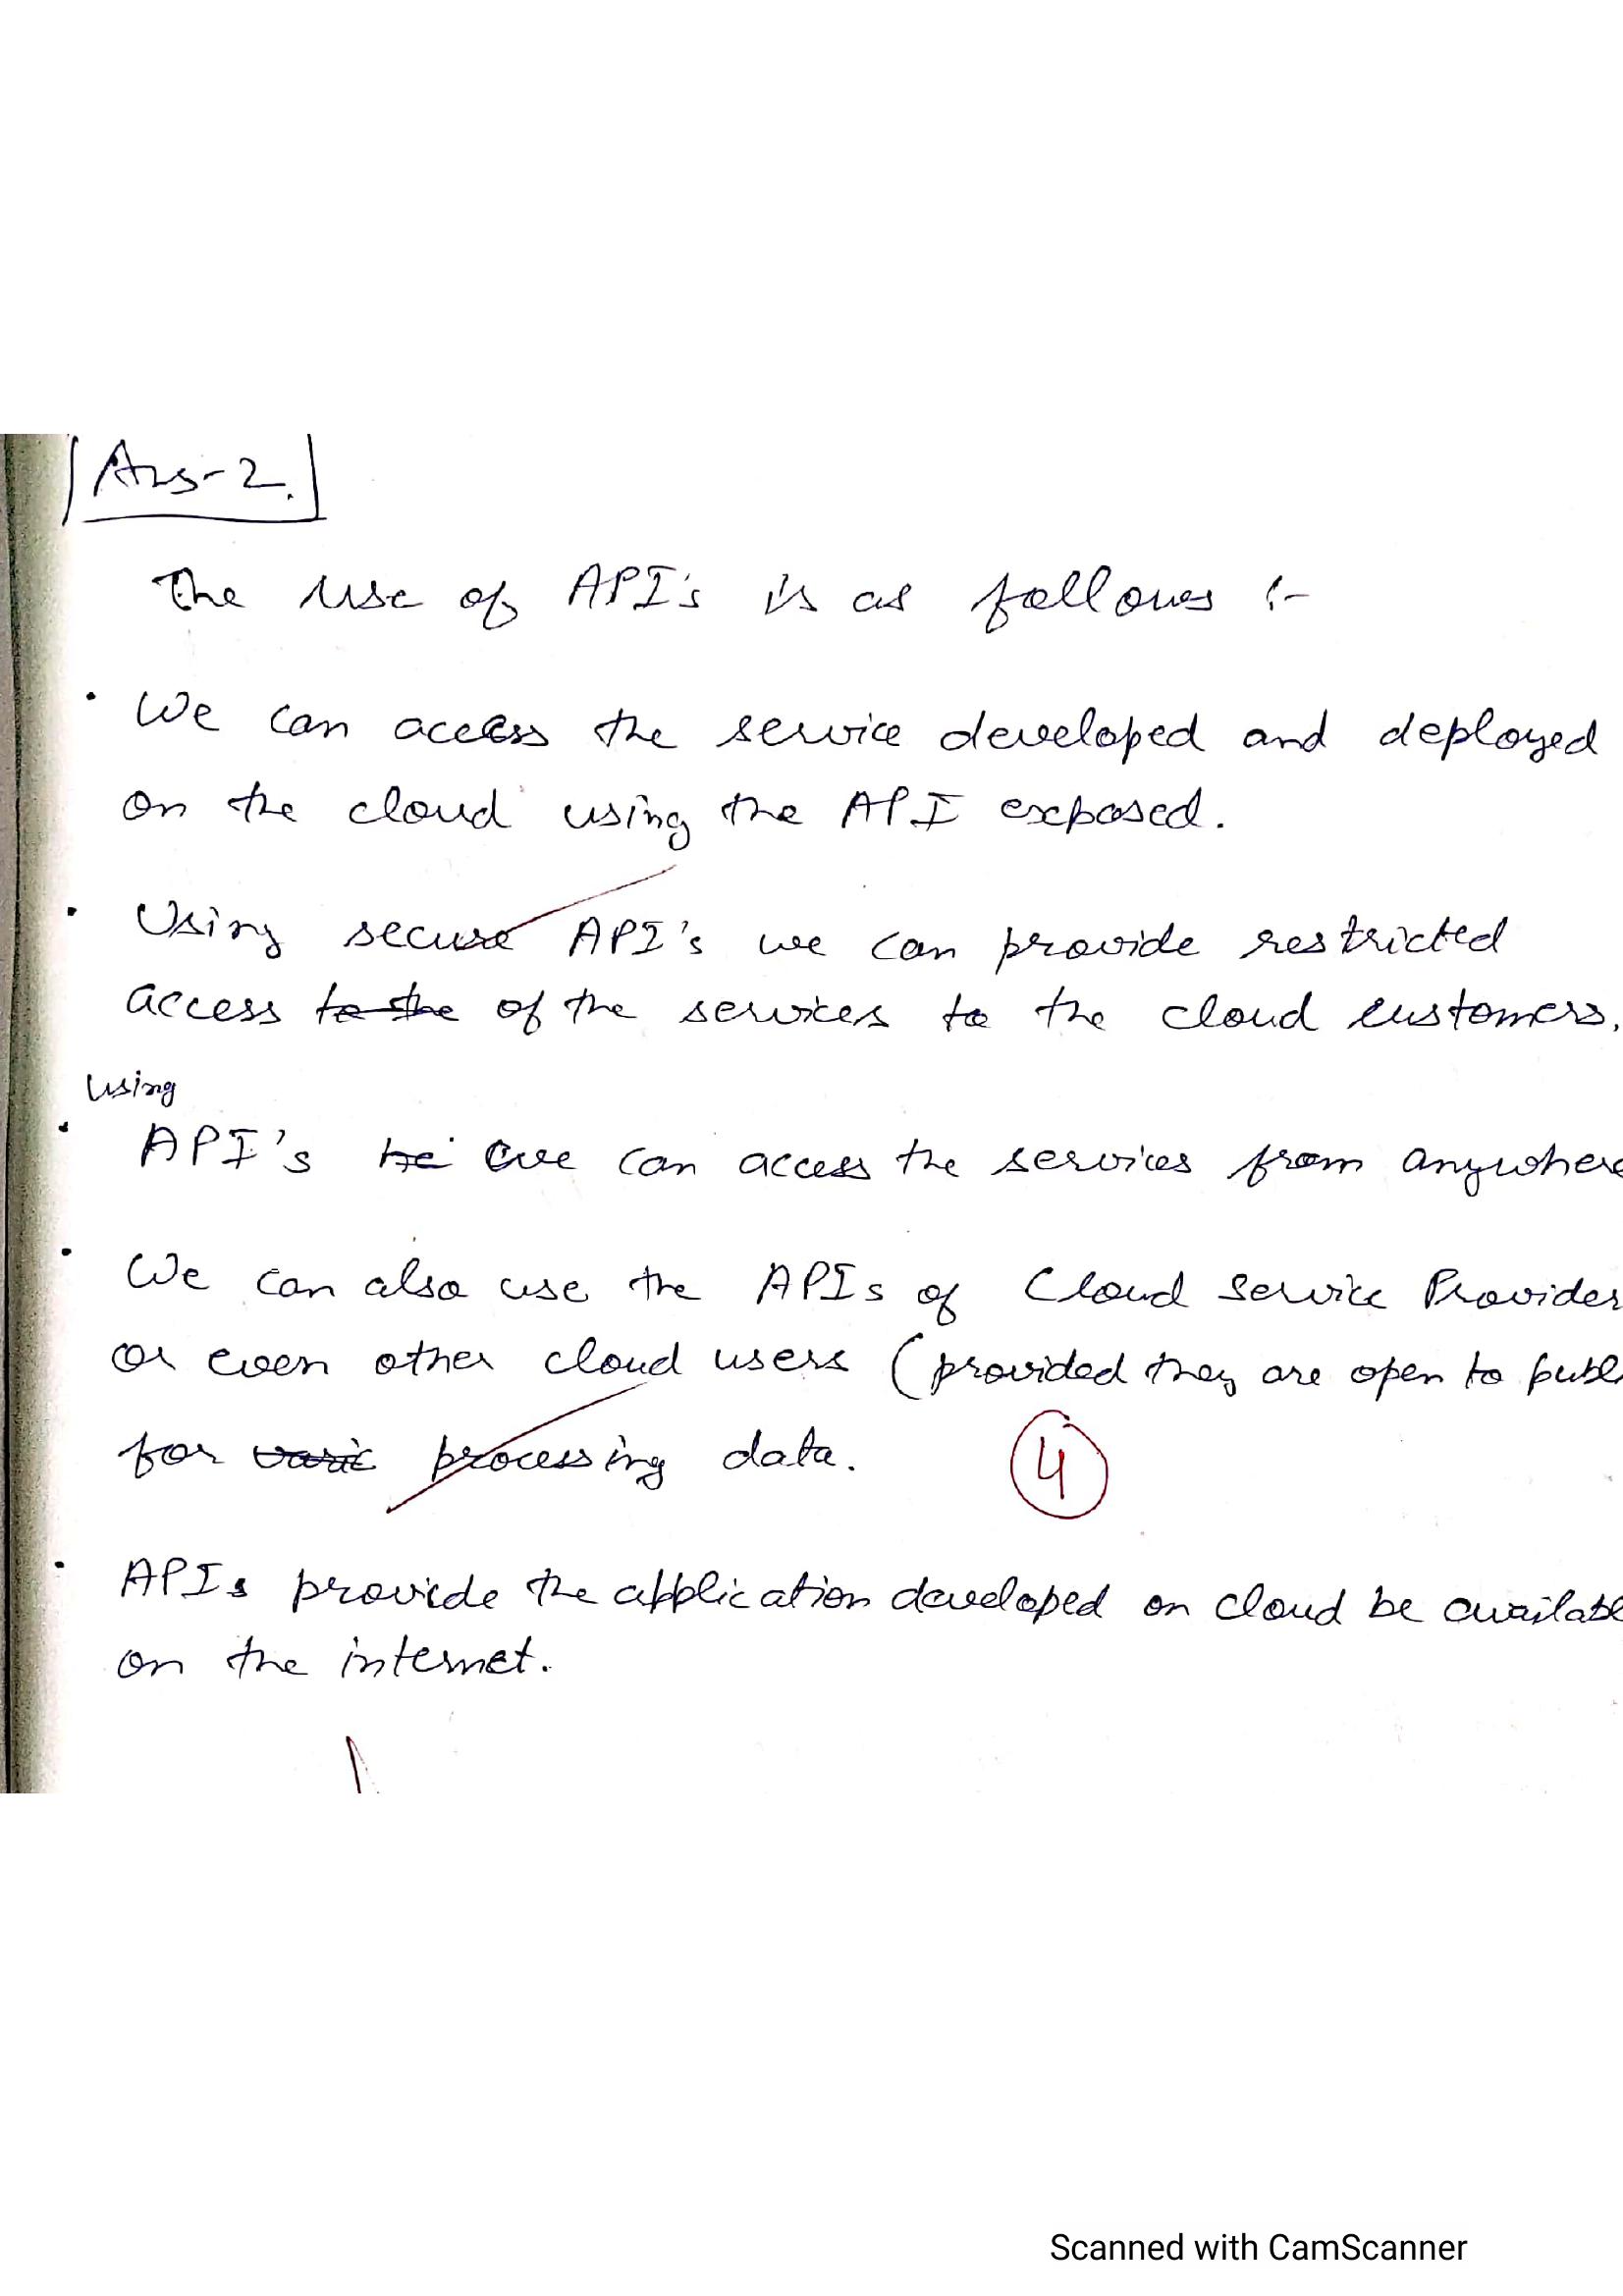 Ans-2.
The use of API's is as follows :-
• We can access the service developed and deployed
on the cloud using the API exposed.
• Using secure API's we can provide restricted
access to the of the services to the cloud customers.
using
• API's he we can access the services from anywhere
• We can also use the APIs of Cloud Service Provider
or even other cloud users (provided they are open to publ
for varic processing data.
4
• APIs provide the application developed on cloud be availabl
on the internet.
Scanned with CamScanner